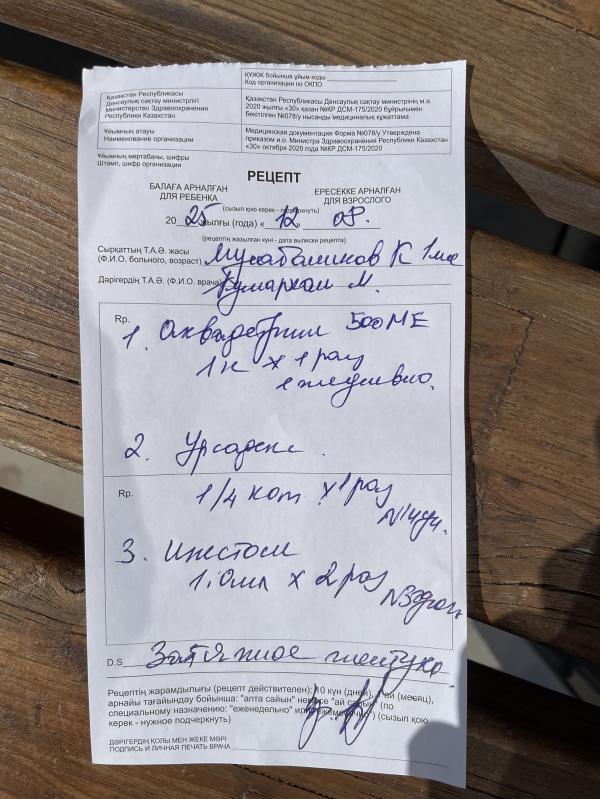 ҚҰЖЖ бойынша ұйым коды
Код организации по ОКПО
Қазақстан Республикасы
Денсаулық сақтау министрлігі
Министерство Здравоохранения
Республики Казахстан
Қазақстан Республикасы Денсаулық сақтау министрінің м.а.
2020 жылғы «30» қазан №ҚР ДСМ-175/2020 бұйрығымен
бекітілген №078/у нысанды медициналық құжаттама
Ұйымның атауы
Наименование организации
Медицинская документация Форма №078/у Утверждена
приказом и.о. Министра Здравоохранения Республики Казахстан
«30» октября 2020 года №ҚР ДСМ-175/2020
Ұйымның мөртабаны, шифры
Штамп, шифр организации
РЕЦЕПТ
БАЛАҒА АРНАЛҒАН
ДЛЯ РЕБЕНКА
ЕРЕСЕККЕ АРНАЛҒАН
ДЛЯ ВЗРОСЛОГО
(сызып қою керек - подчеркнуть)
20 25 жылғы (года) « 12 » 08.
(рецептің жазылған күні - дата выписки рецепта)
Сырқаттың Т.А.Ә. жасы
(Ф.И.О. больного, возраст) К 1 ме
Дәрігердің Т.А.Ә. (Ф.И.О. врача) М.
Rp.
1. Аквадетрим 500 МЕ
1 к х 1 раз
ежедневно.
2. Урсосан
Rp.
1/4 х 1 раз
N14
3.
1.0мл х 2 раз
D.S. Затяжное желтуха.
Рецептің жарамдылығы (рецепт действителен): 10 күн (дней), ай (месяц),
арнайы тағайындау бойынша: "апта сайын" немесе "ай сайын" (по
специальному назначению: "еженедельно" или "ежемесячно") (сызып қою
керек - нужное подчеркнуть)
ДӘРІГЕРДІҢ ҚОЛЫ МЕН ЖЕКЕ МӨРІ
ПОДПИСЬ И ЛИЧНАЯ ПЕЧАТЬ ВРАЧА